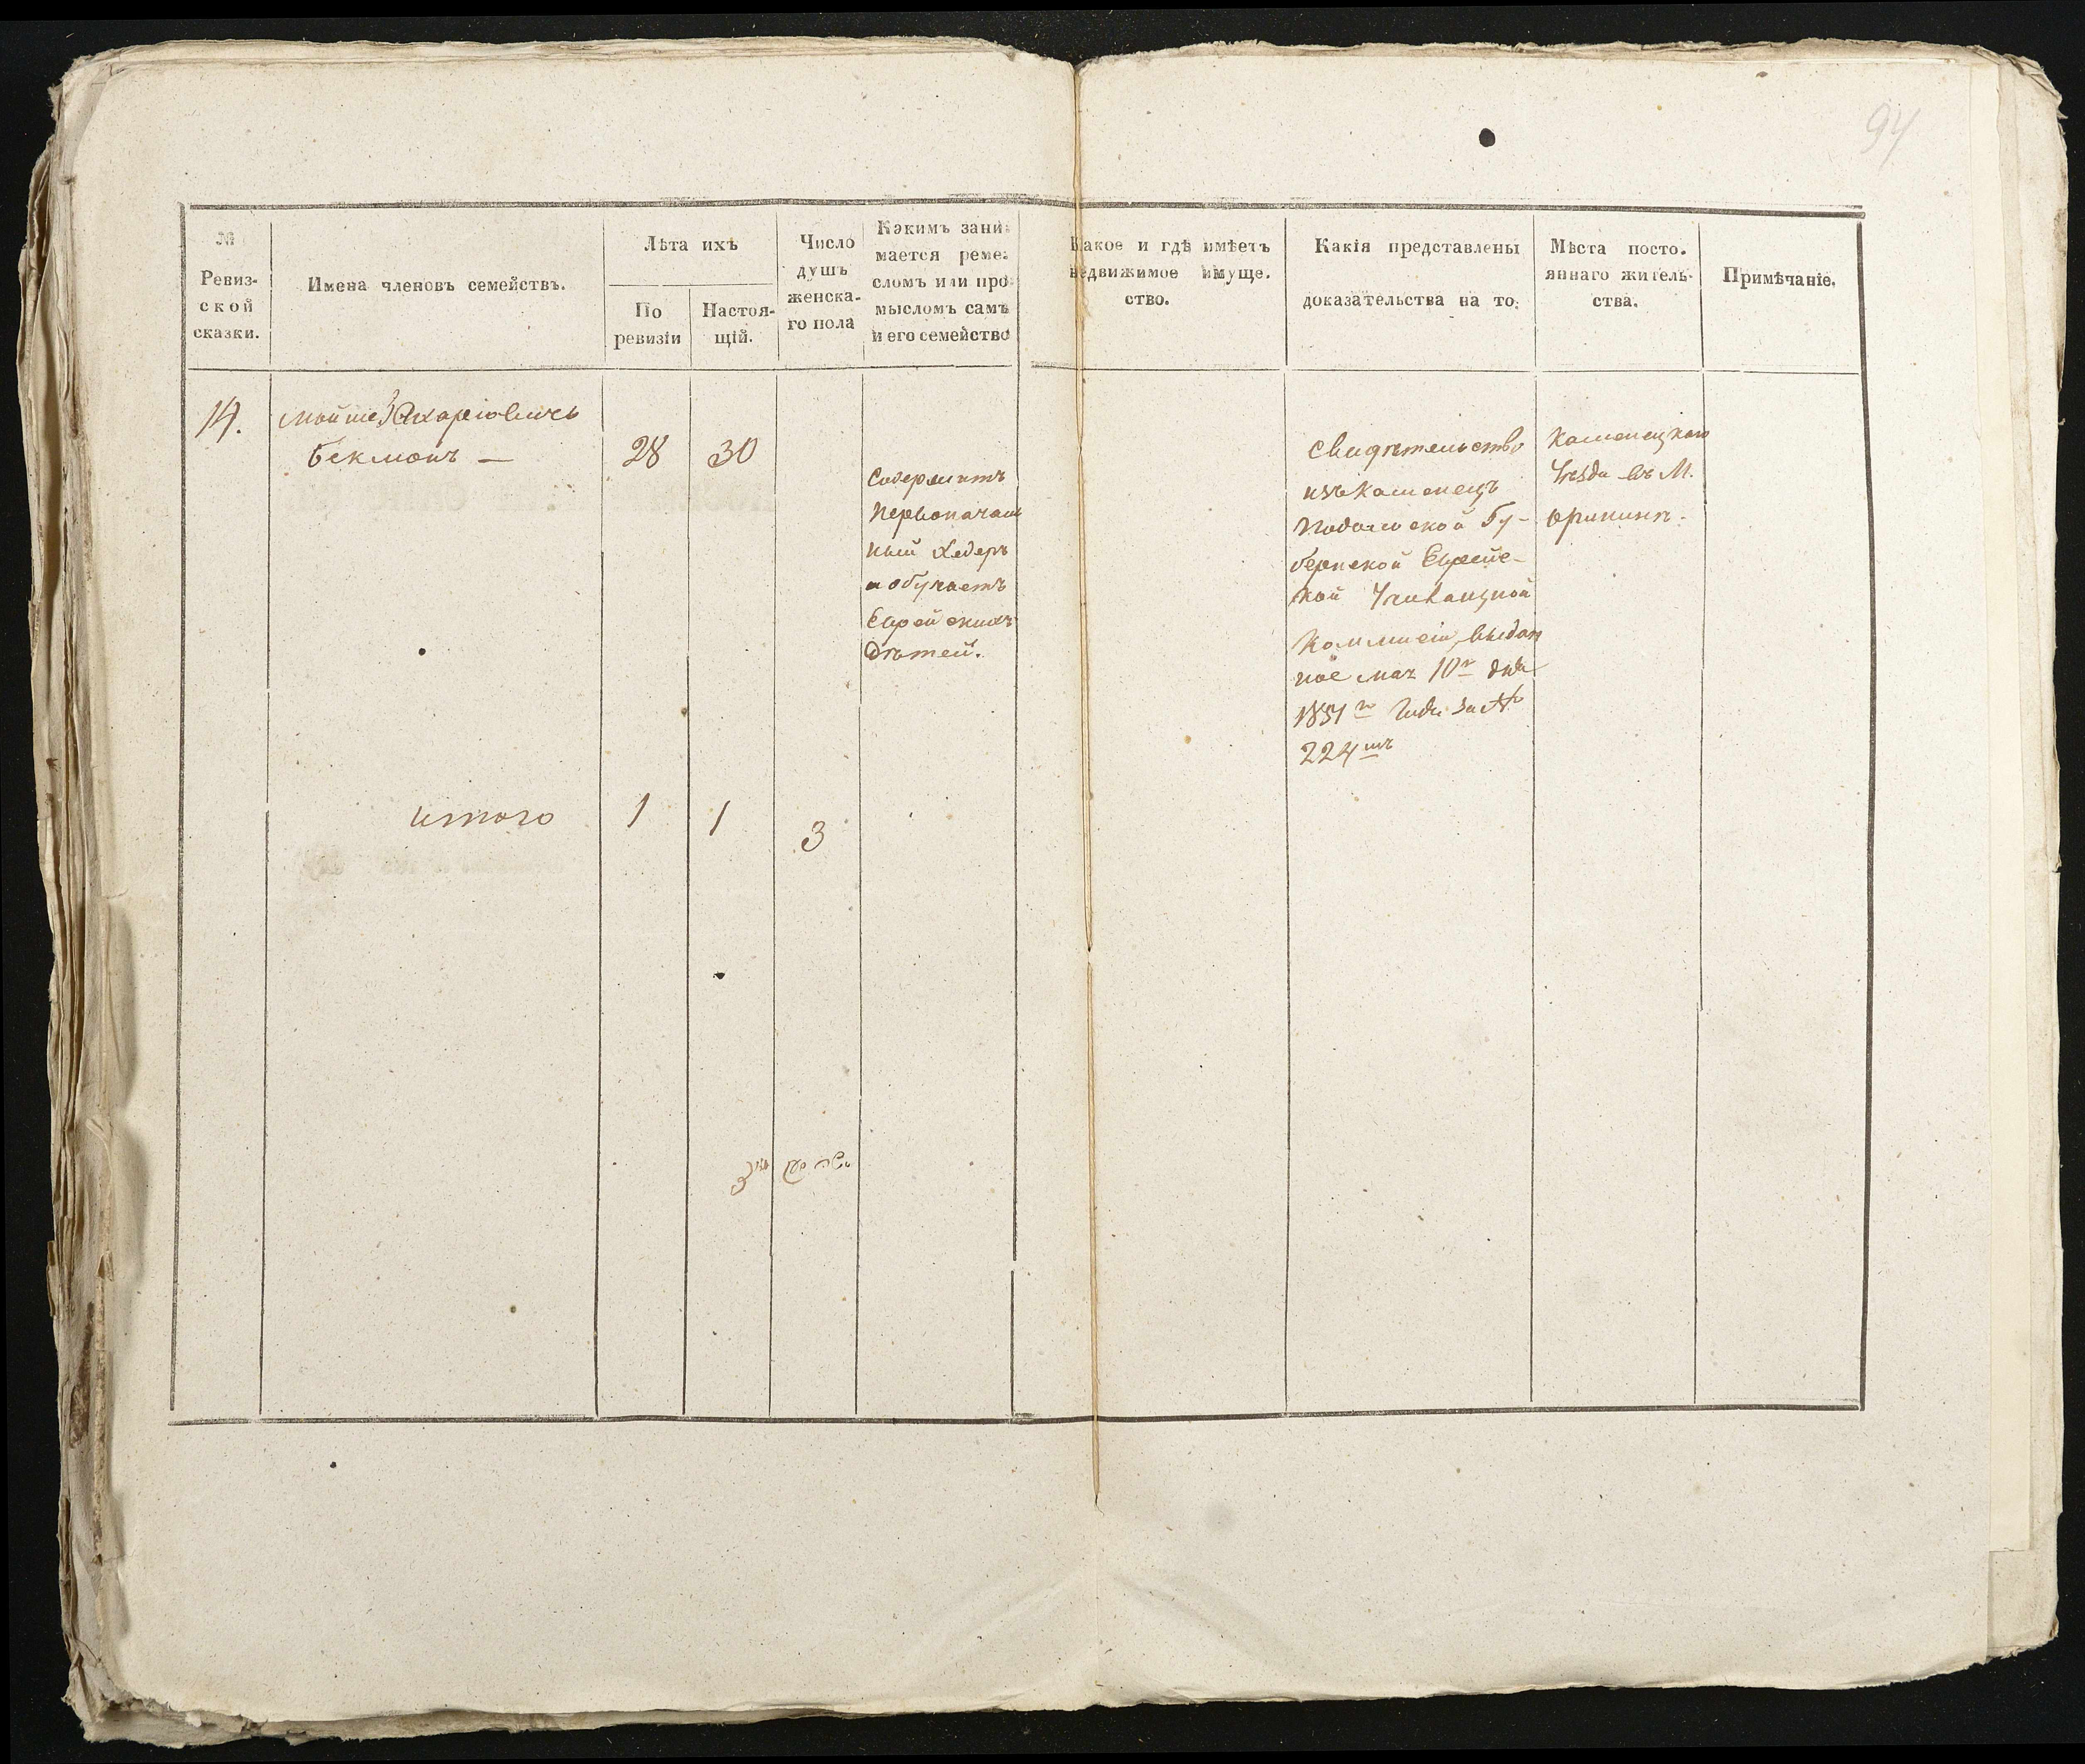 94
№
Ревиз-
ской
сказки.
Имена членовъ семействъ.
Лѣта ихъ
По
ревизіи
Настоя-
щій.
Число
душъ
женска-
го пола
Какимъ зани-
мается реме-
сломъ или про-
мысломъ самъ
и его семейство
Какое и гдѣ имѣетъ
недвижимое имуще.
ство.
Какія представлены
доказательства на то:
Мѣста посто.
яннаго житель-
ства.
Примѣчаніе.
14.
Мойше Захаріовичъ
Бекманъ —
28
30
Содержитъ
первоначаль
ный хедеръ
и обучаетъ
Еврейскихъ
дѣтей.
Свидѣтельство
изъ Каменецъ
Подольской Гу-
бернской Еврейс-
кой
Коммисіи, выдан
ное мая 10го дня
1851го года за №
224мъ
Каменецкаго
Уѣзда въ М.
Оринин
итого
1
1
3